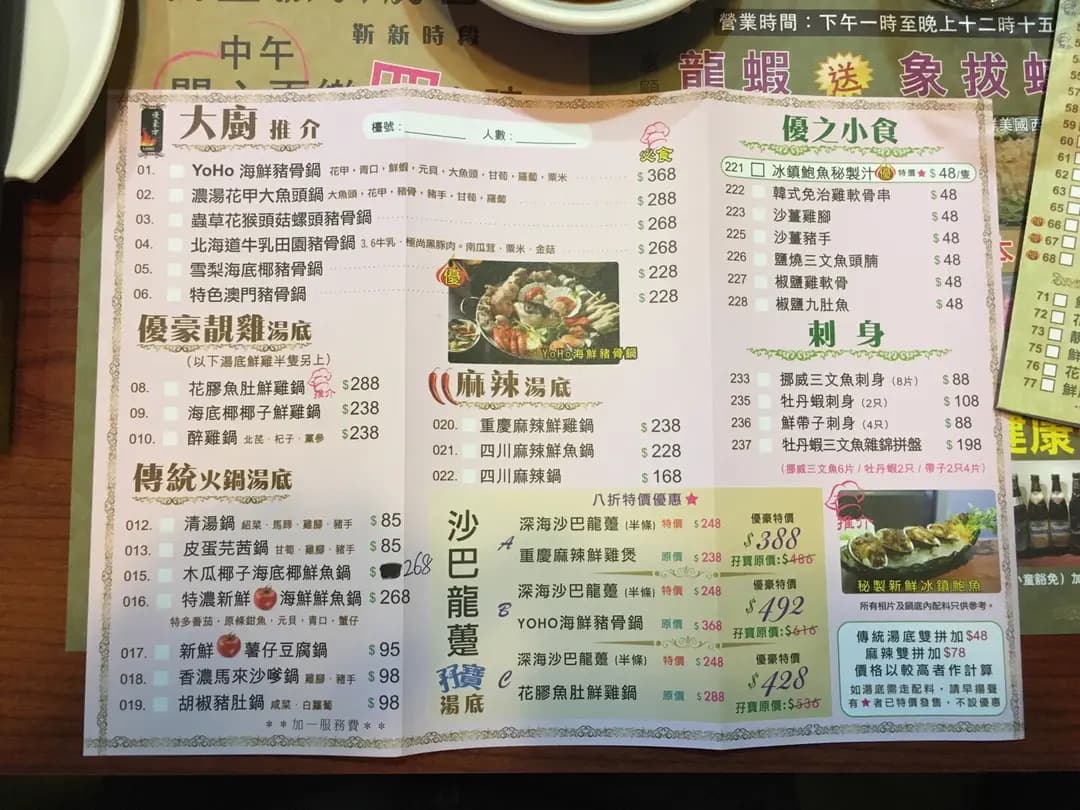 靳新時段
中午
營業時間：下午一時至晚上十二時十五
龍蝦送象拔蚌
大廚推介
檯號：
人數：
必食
01. YoHo 海鮮豬骨鍋 花甲，青口，鮮蝦，元貝，大魚頭，甘荀，蘿蔔，粟米 $368
02. 濃湯花甲大魚頭鍋 大魚頭，花甲，豬骨，豬手，甘荀，蘿蔔 $288
03. 蟲草花猴頭菇螺頭豬骨鍋 $268
04. 北海道牛乳田園豬骨鍋 3.6牛乳，極尚黑豚肉。南瓜茸．粟米．金菇 $268
05. 雪梨海底椰豬骨鍋 $228
06. 特色澳門豬骨鍋 $228
優
YoHo海鮮豬骨鍋
優豪靚雞湯底
(以下湯底鮮雞半隻另上)
08. 花膠魚肚鮮雞鍋 推介 $288
09. 海底椰椰子鮮雞鍋 $238
010. 醉雞鍋 北芪．杞子．黨參 $238
傳統火鍋湯底
012. 清湯鍋 紹菜．馬蹄．雞腳．豬手 $85
013. 皮蛋芫茜鍋 甘荀．雞腳．豬手 $85
015. 木瓜椰子海底椰鮮魚鍋 $ 268
016. 特濃新鮮 海鮮鮮魚鍋 $268
特多番茄，原條鉗魚，元貝，青口，蟹仔
017. 新鮮 薯仔豆腐鍋 $95
018. 香濃馬來沙嗲鍋 雞腳．豬手 $98
019. 胡椒豬肚鍋 咸菜．白蘿蔔 $98
＊＊加一服務費＊＊
麻辣湯底
020. 重慶麻辣鮮雞鍋 $238
021. 四川麻辣鮮魚鍋 $228
022. 四川麻辣鍋 $168
八折特價優惠★
沙巴龍躉孖寶湯底
A
深海沙巴龍躉 (半條) 特價 $248
重慶麻辣鮮雞煲 原價 $238
優豪特價
$388
孖寶原價:$486
B
深海沙巴龍躉 (半條) 特價 $248
YOHO海鮮豬骨鍋 原價 $368
優豪特價
$492
孖寶原價:$616
C
深海沙巴龍躉 (半條) 特價 $248
花膠魚肚鮮雞鍋 原價 $288
優豪特價
$428
孖寶原價:$536
優之小食
221 冰鎮鮑魚秘製汁 優 特價★$48/隻
222 韓式免治雞軟骨串 $48
223 沙薑雞腳 $48
225 沙薑豬手 $48
226 鹽燒三文魚頭腩 $48
227 椒鹽雞軟骨 $48
228 椒鹽九肚魚 $48
刺身
233 挪威三文魚刺身 (8片) $88
235 牡丹蝦刺身 (2只) $108
236 鮮帶子刺身 (4只) $88
237 牡丹蝦三文魚雜錦拼盤 $198
(挪威三文魚6片 / 牡丹蝦2只 / 帶子2只4片)
推介
秘製新鮮冰鎮鮑魚
所有相片及鍋底內配料只供參考。
傳統湯底雙拼加$48
麻辣雙拼加$78
價格以較高者作計算
如湯底需走配料，請早揚聲
有★者已特價發售，不設優惠
美國西
57
58
59
60
61
62
63
65
66
67
68
71
72
73
75
76
77
健康
小童豁免) 加